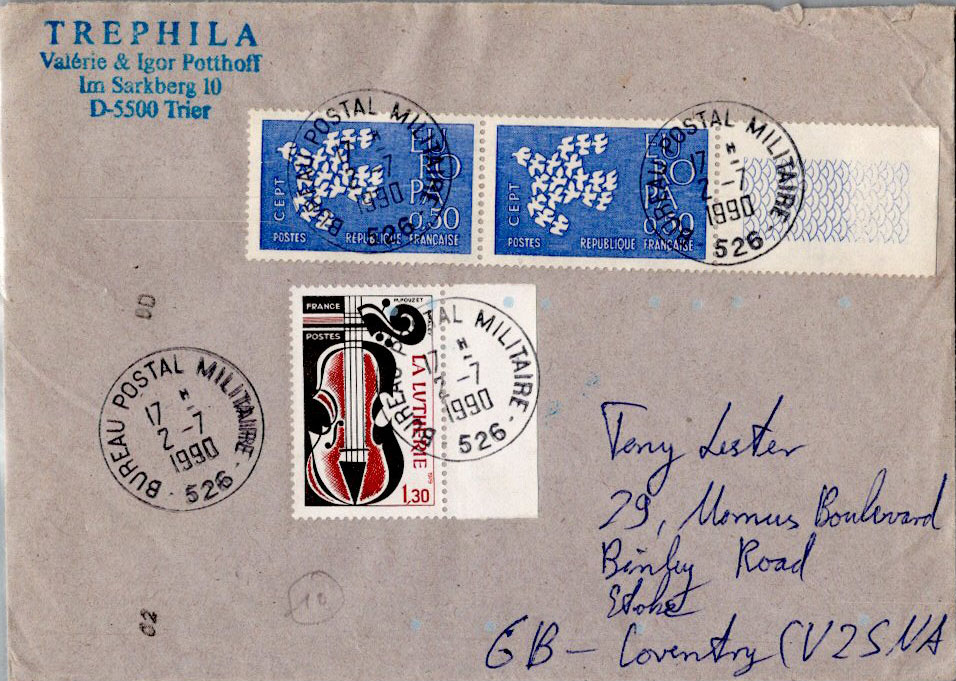 TREPHILA
Valérie & Igor Potthoff
Im Sarkberg 10
D-5500 Trier
BUREAU POSTAL MILITAIRE
17 H
2 -7
1990
526
CEPT
EUROPA
0,30
POSTES RÉPUBLIQUE FRANÇAISE
BUREAU POSTAL MILITAIRE
17 H
2 -7
1990
526
CEPT
EUROPA
POSTES RÉPUBLIQUE FRANÇAISE
FRANCE
POSTES
M. POUZET
LA LUTHERIE
1979
1,30
BUREAU POSTAL MILITAIRE
17 H
2 -7
1990
526
BUREAU POSTAL MILITAIRE
17 H
2 -7
1990
526
DD
C2
10
Tony Lester
29, Momus Boulevard
Binley Road
Stoke
GB - Coventry CV2 5NA